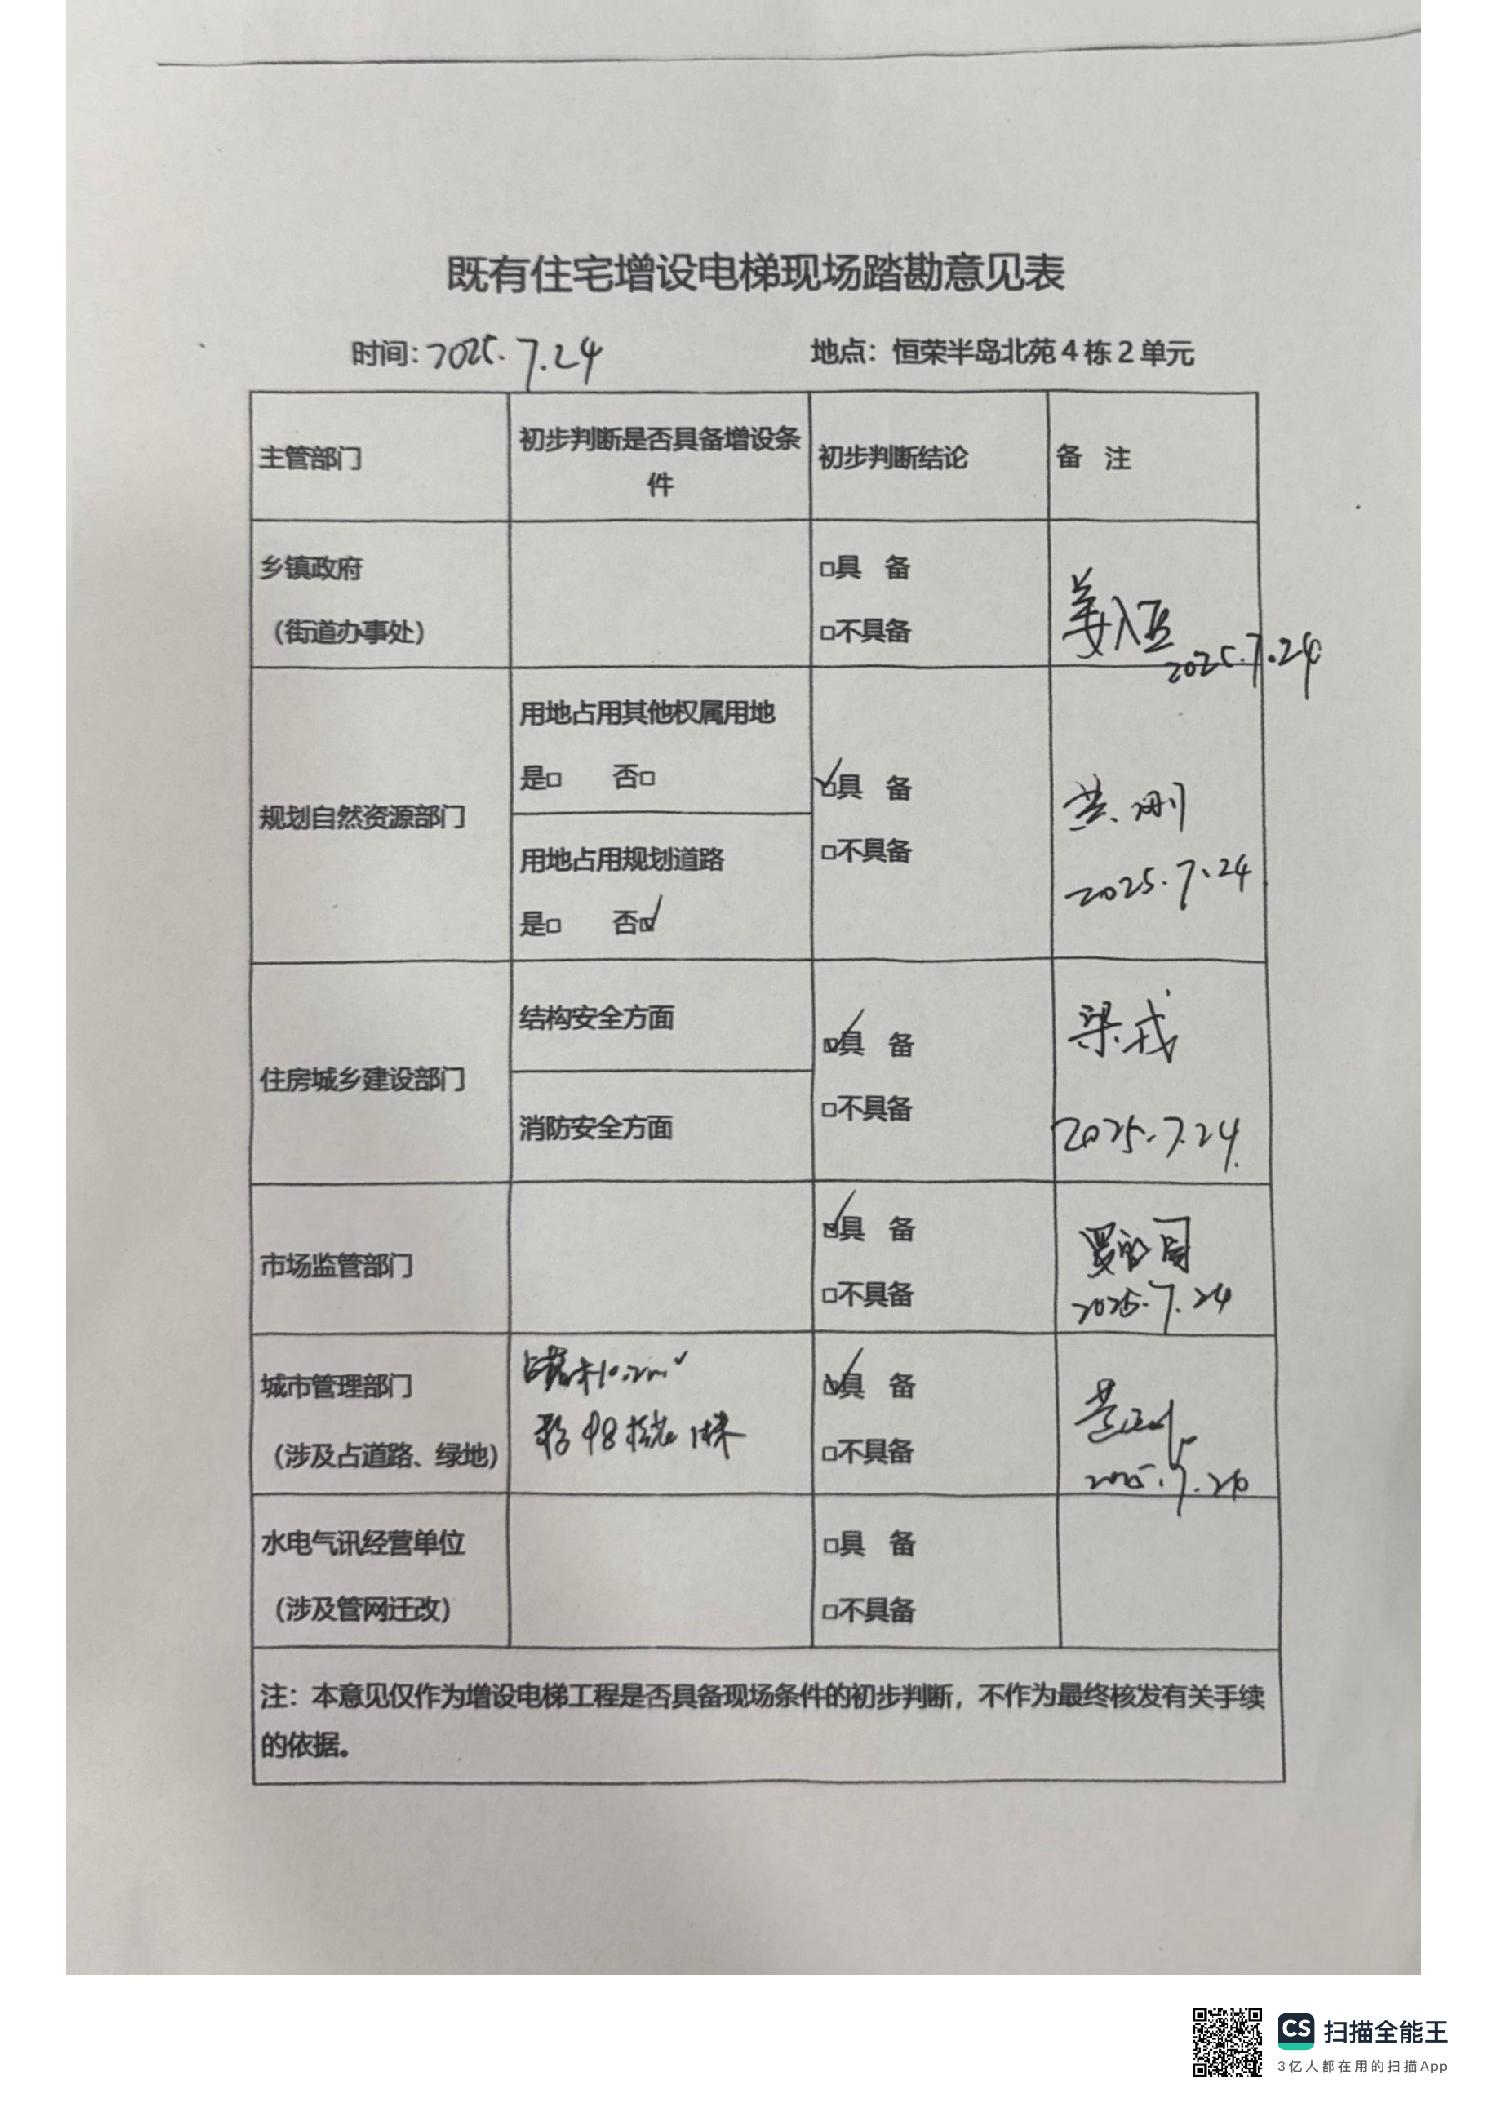 既有住宅增设电梯现场踏勘意见表
时间：2025.7.24 地点：恒荣半岛北苑4栋2单元
主管部门 初步判断是否具备增设条件 初步判断结论 备 注
乡镇政府
（街道办事处）
□具 备
□不具备
2025.7.24
规划自然资源部门
用地占用其他权属用地
是□ 否□
用地占用规划道路
是□ 否☑
☑具 备
□不具备
2025.7.24
住房城乡建设部门
结构安全方面
消防安全方面
☑具 备
□不具备
2025.7.24
市场监管部门
☑具 备
□不具备
2025.7.24
城市管理部门
（涉及占道路、绿地）
☑具 备
□不具备
水电气讯经营单位
（涉及管网迁改）
□具 备
□不具备
注：本意见仅作为增设电梯工程是否具备现场条件的初步判断，不作为最终核发有关手续
的依据。
CS 扫描全能王
3亿人都在用的扫描App